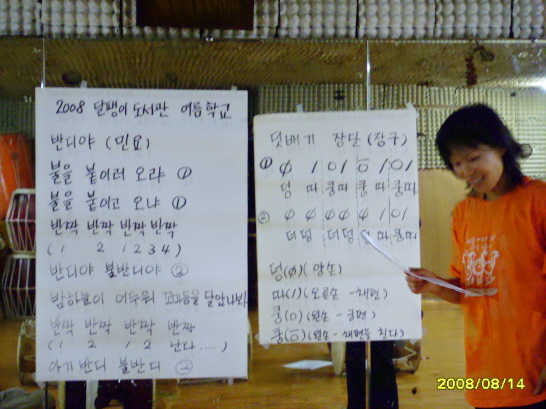 2008 달팽이 도서관 여름학교
반디야 (민요)
불을 붙이러 오랴 ①
불을 붙이고 오냐 ①
반짝 반짝 반짝 반짝
(1 2 1 2 3 4)
반디야 불반디야 ②
밤하늘이 어두워 꼬마등을 달았나봐
반짝 반짝 반짝 반짝
(1 2 1 2 난다....)
아기반디 불반디 ②
덧배기 장단 (장구)
덩 따 쿵따 쿵 따 쿵따
더덩 더덩 따쿵따
덩(Φ)(양손)
따(1)(오른손-채편)
쿵(O)(왼손-궁편)
쿵(O̅)(왼손-채편을 친다)
2008/08/14